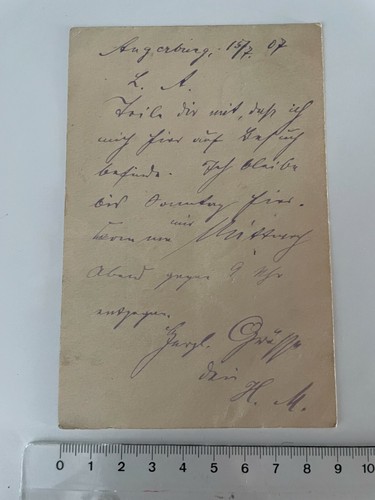 Angerburg, 15/7. 07
L. A.
Teile dir mit, daß ich
mich hier auf Besuch
befinde. Ich bleibe
bis Sonntag hier.
komme mir Mittwoch
Abend gegen 9 Uhr
entgegen.
Herzl. Grüsse
dein
H. M.
0 1 2 3 4 5 6 7 8 9 10